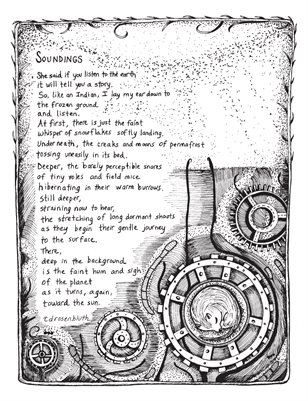 SOUNDINGS
She said if you listen to the earth
it will tell you a story.
So, like an Indian, I lay my ear down to
the frozen ground
and listen.
At first, there is just the faint
whisper of snowflakes softly landing.
Underneath, the creaks and moans of permafrost
tossing uneasily in its bed.
Deeper, the barely perceptible snores
of tiny voles and field mice
hibernating in their warm burrows.
Still deeper,
straining now to hear,
the stretching of long dormant shoots
as they begin their gentle journey
to the surface.
There,
deep in the background
is the faint hum and sigh
of the planet
as it turns, again,
toward the sun.
rdrosenbluth